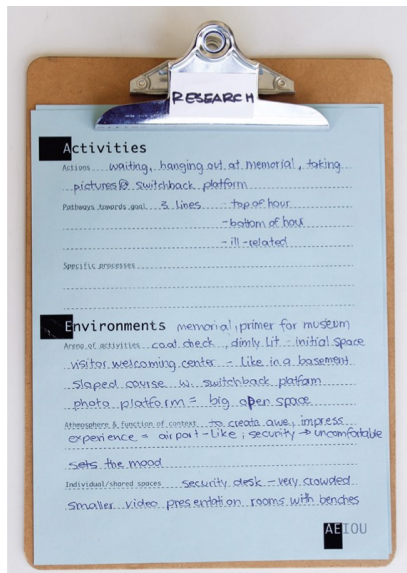 RESEARCH
Activities
Actions waiting, hanging out at memorial, taking
pictures @ switchback platform
Pathways towards goal 3 lines - top of hour
- bottom of hour
- ill-related
Specific processes
Environments memorial, primer for museum
Area of activities coat check, dimly lit - initial space
visitor welcoming center - like in a basement
sloped course w. switchback platform
photo platform = big open space
Atmosphere & function of context to create awe, impress
experience = airport-like, security → uncomfortable
sets the mood
Individual/shared spaces security desk - very crowded
smaller video presentation rooms with benches
AEIOU